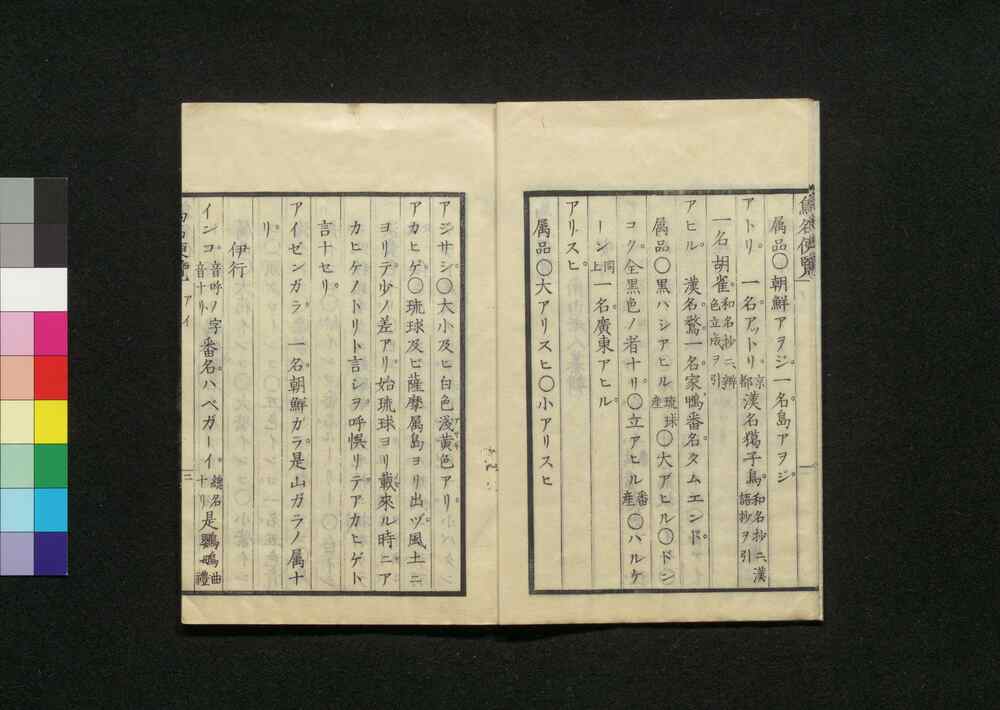 鳥名便覧
属品〇朝鮮アヲジ一名島アヲジ
アトリ。一名アットリ京都漢名獦子鳥。和名抄ニ漢語抄ヲ引
一名胡雀。和名抄ニ辨色立成ヲ引
アヒル。漢名鶩。一名家鴨。番名タムエンド。
属品〇黒ハシアヒル琉球産〇大アヒル〇ドン
コク。全黒色ノ者ナリ。〇立アヒル番産〇ハルケ
ーン同上一名廣東アヒル
アリスヒ。
属品〇大アリスヒ〇小アリスヒ
アジサシ。〇大小及ヒ白色淺黄色アリ
アカヒゲ〇琉球及ビ薩摩属島ヨリ出ヅ。風土ニ
ヨリテ少ノ差アリ。始琉球ヨリ載來ル時ニア
カヒゲノトリト言シヲ呼悞リテアカヒゲト
言ナセリ。
アイゼンガラ。一名朝鮮ガラ。是山ガラノ属ナ
リ。
伊行
インコ。音呼ノ字音ナリ。番名ハペガーイ。總名ナリ是鸚䳇曲禮
鳥名便覧 アイ 三